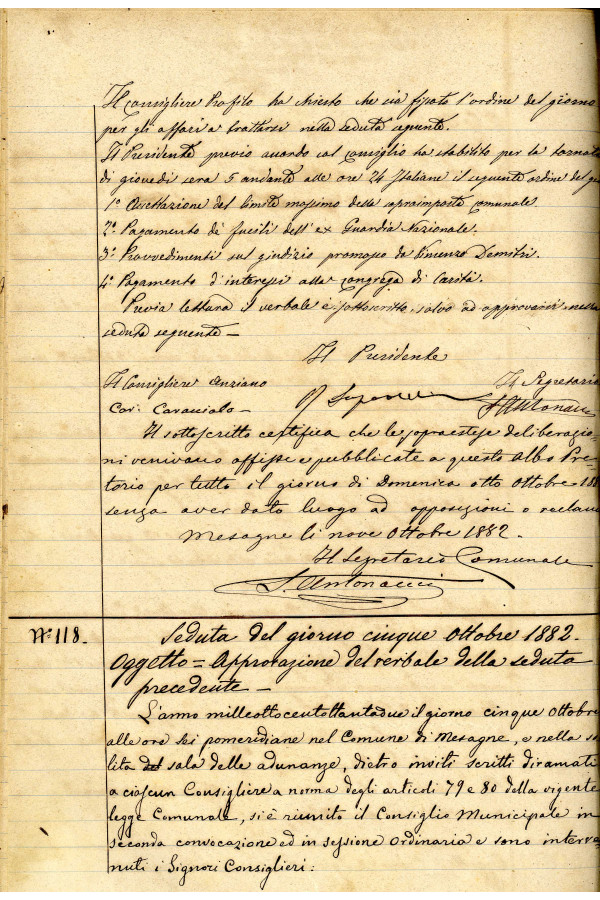 Il Consigliere Profilo ha chiesto che sia fissato l'ordine del giorno
per gli affari a trattarsi nella seduta seguente.
Il Presidente previo accordo col Consiglio ha stabilito per la tornata
di giovedì sera 5 andante alle ore 24 Italiane il seguente ordine del
1º Accettazione del limite massimo della sovraimposta Comunale.
2º Pagamento di fucili dell'ex Guardia Nazionale.
3º Provvedimenti sul giudizio promosso da Vincenzo Demitri.
4º Pagamento d'interessi alla Congrega di Carità.
Previa lettura il verbale è sottoscritto, salvo ad approvarsi nella
seduta seguente –
Il Presidente
Il Consigliere Anziano
Il Segretario
Cav: Caracciolo –
S. Antonacci
Il sottoscritto certifica che le sopraestese deliberazio-
ni venivano affisse e pubblicate a questo Albo Pre-
torio per tutto il giorno di Domenica otto Ottobre 188
senza aver dato luogo ad opposizioni o reclami
Mesagne li nove Ottobre 1882.
Il Segretario Comunale
S. Antonacci
Nº 118.
Seduta del giorno cinque Ottobre 1882.
Oggetto = Approvazione del verbale della seduta
precedente –
L'anno milleottocentottantadue il giorno cinque Ottobre
alle ore sei pomeridiane nel Comune di Mesagne, e nella so-
lita sala delle adunanze, dietro inviti scritti diramati
a ciascun Consigliere a norma degli articoli 79 e 80 della vigente
legge Comunale, si è riunito il Consiglio Municipale in
seconda convocazione ed in sessione Ordinaria e sono interve-
nuti i Signori Consiglieri: